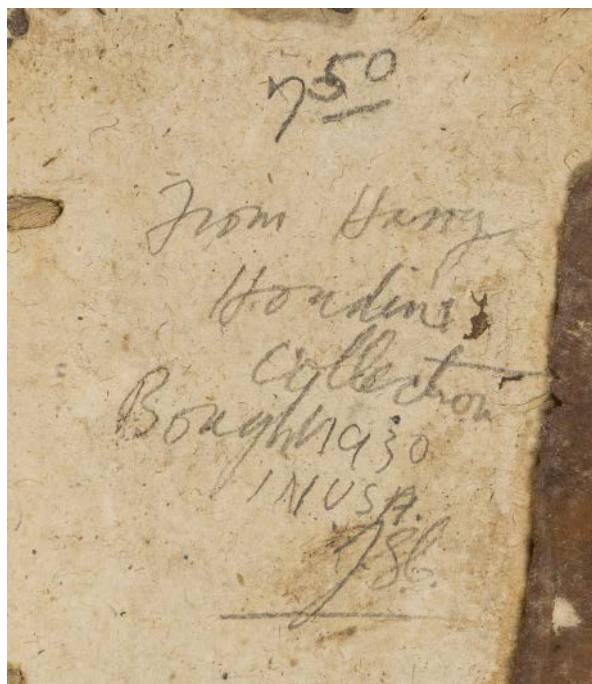 750
From Harry
Houdini
Collection
Bought 1930
IN USA.